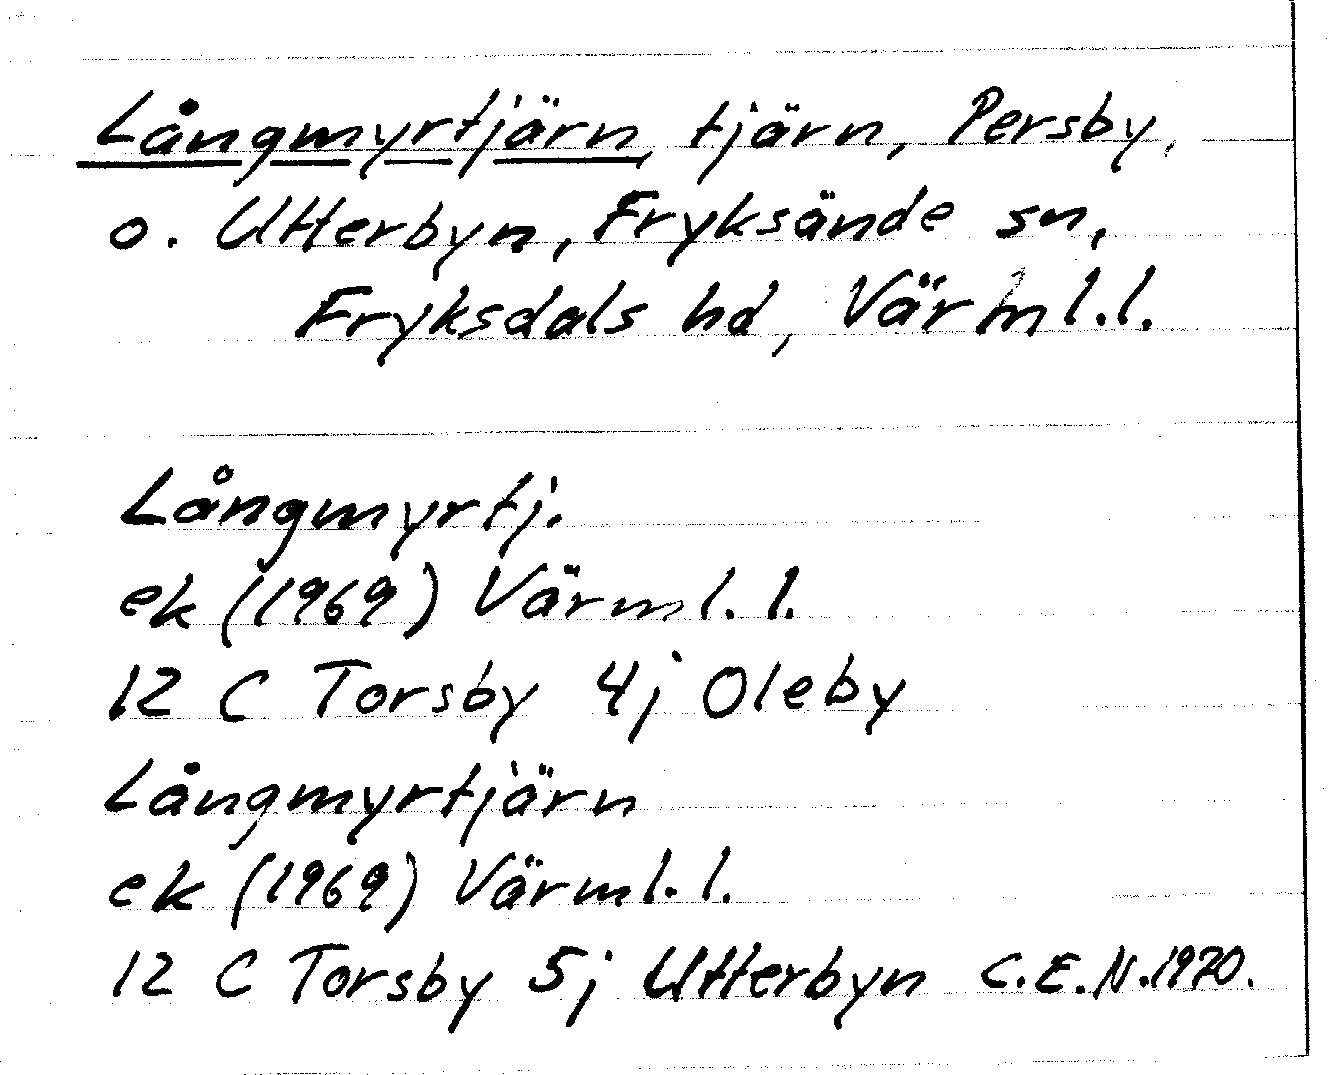 Långmyrtjärn, tjärn, Persby,
o. Utterbyn, Fryksände sn,
Fryksdals hd, Värml.l.
Långmyrtj.
ek (1969) Värml.l.
12 C Torsby 4j Oleby
Långmyrtjärn
ek (1969) Värml.l.
12 C Torsby 5j Utterbyn C.E.N.1970.